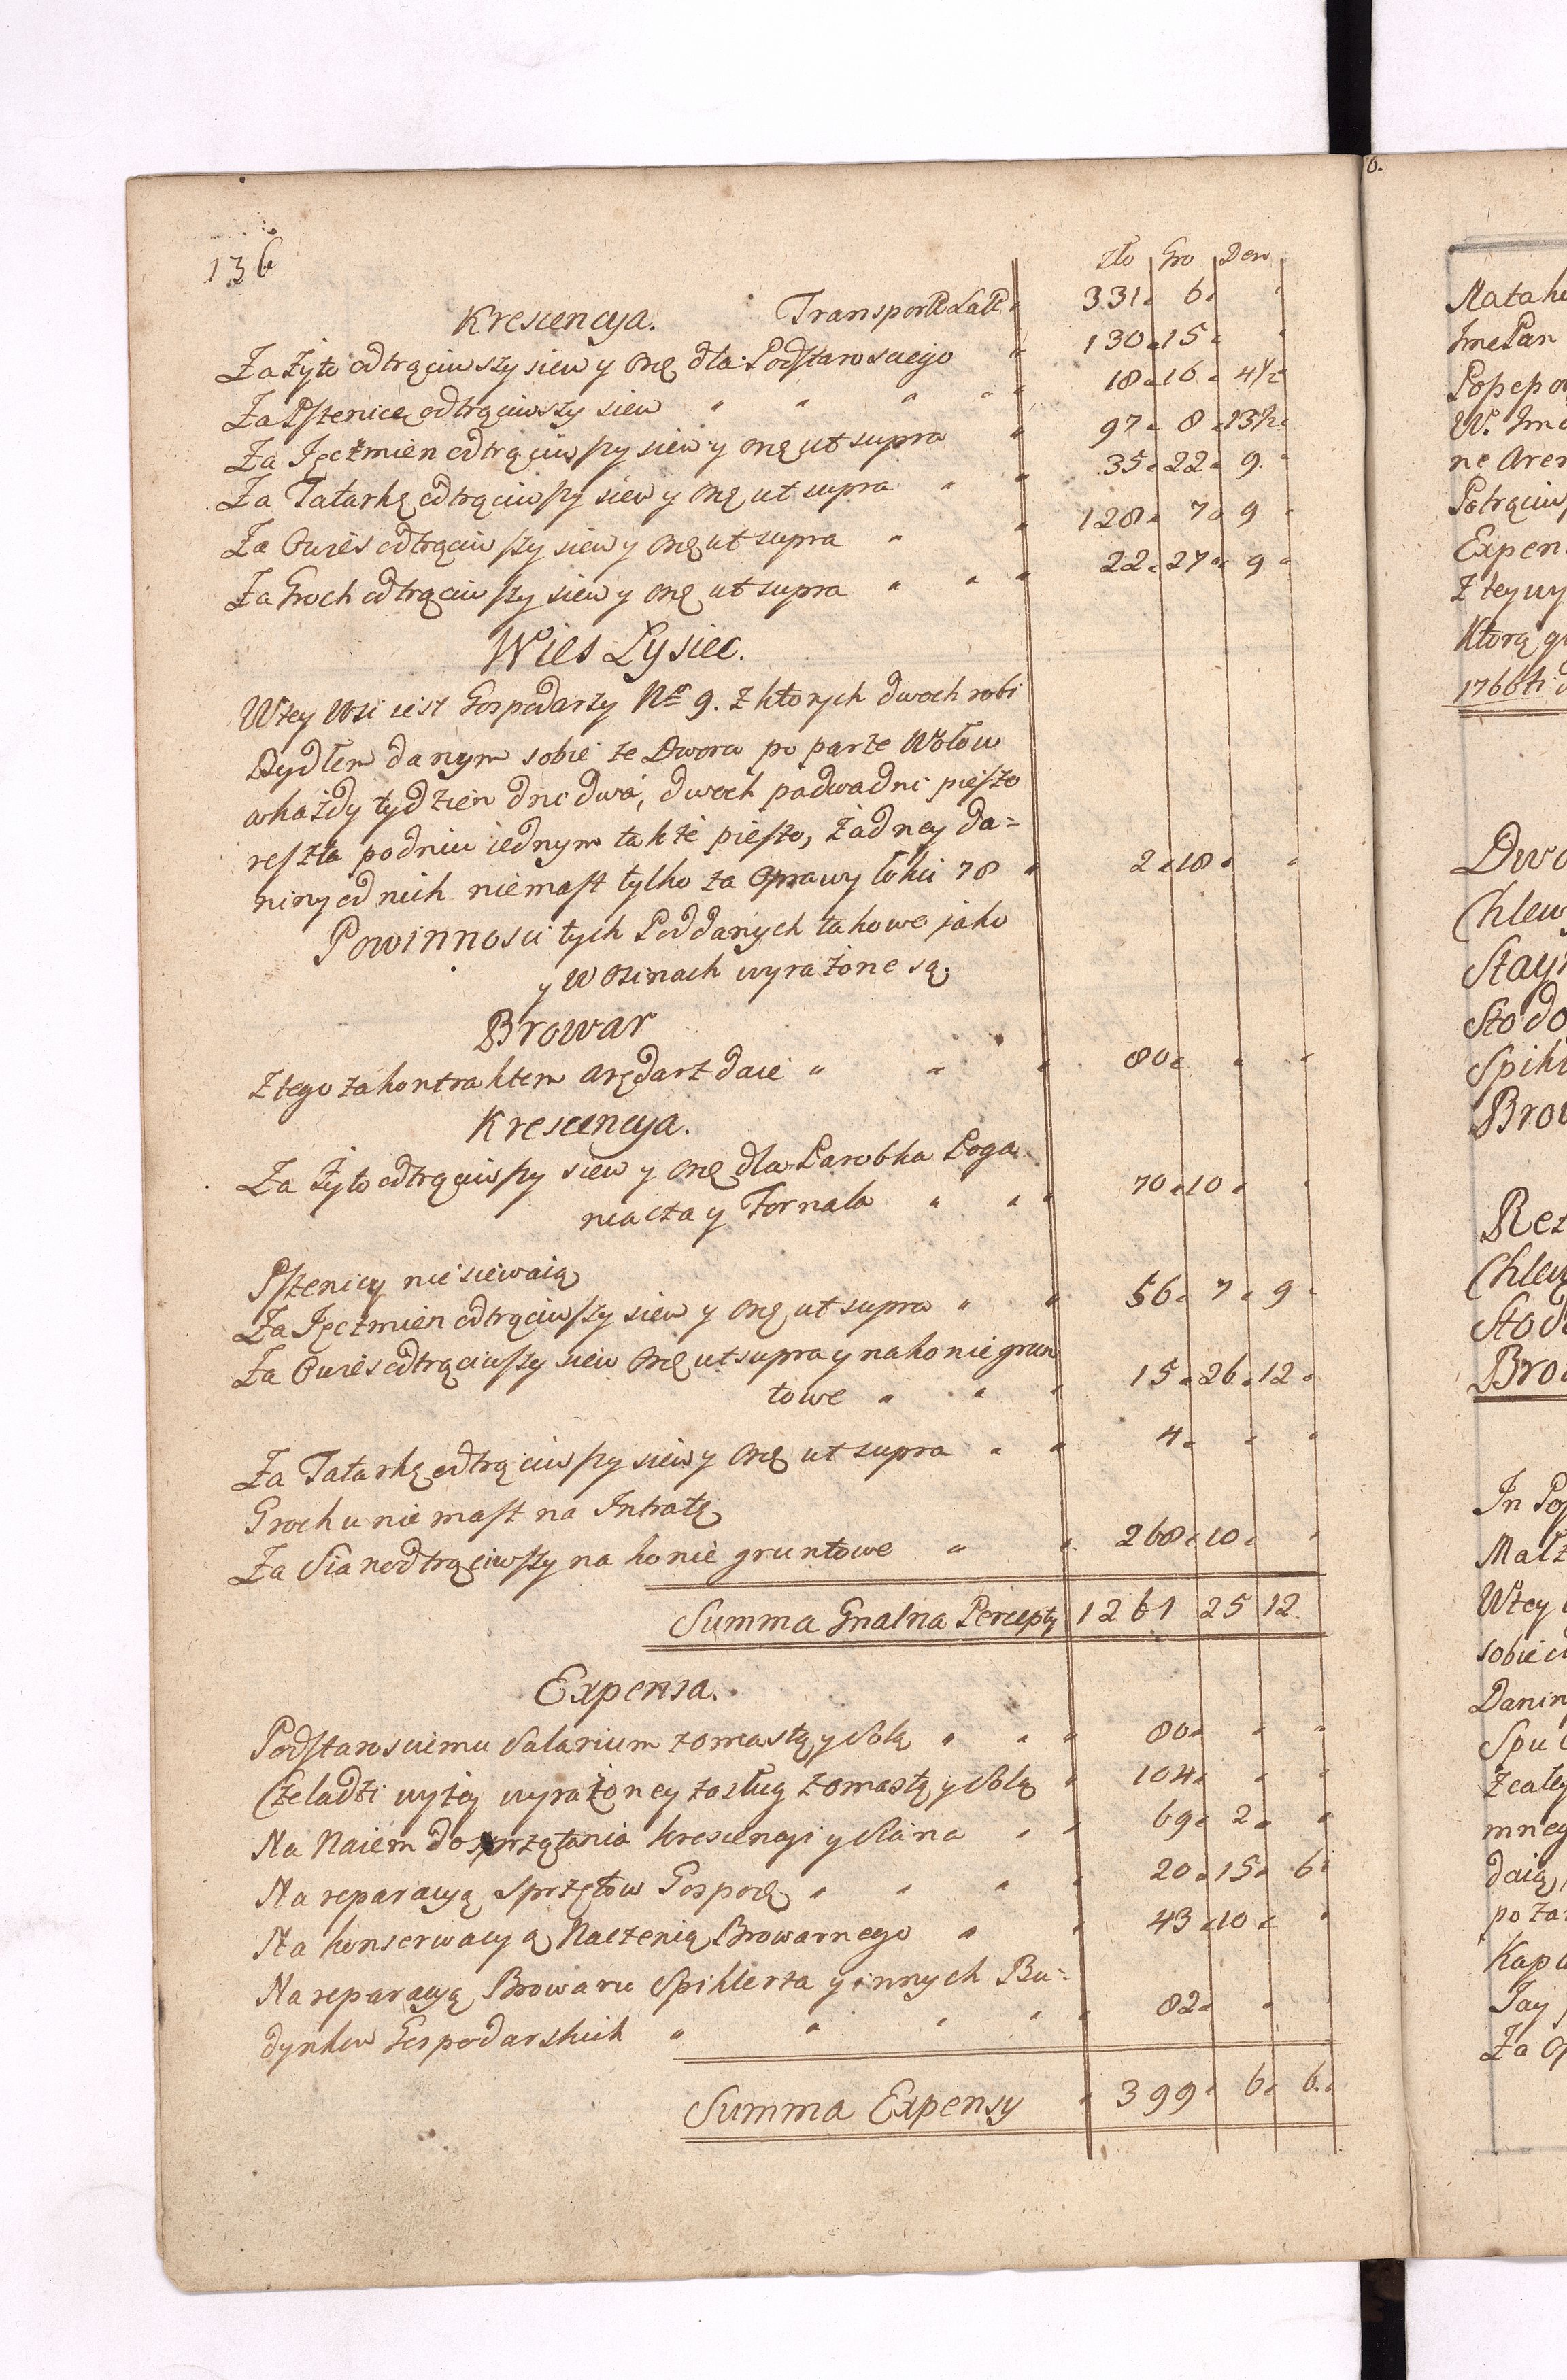 136
Zło Gro Den
Krescencya. Transport Lat 331 6
Za Żyto odtrąciwszy siew y Orę dla Podstarosciego 130 15
Za Pszenicę odtrąciwszy siew 18 16 4½
Za Jęczmien odtrąciwszy siew y Orę ut supra 97 8 13½
Za Tatarkę odtrąciwszy siew y Orę ut supra 35 22 9
Za Owies odtrąciwszy siew y Orę ut supra 128 7 9
Za Groch odtrąciwszy siew y Orę ut supra 22 27 9
Wies Łysiec.
Wtey Wsi iest Gospodarzy Nro 9. z ktorych dwoch robi
Bydłem danym sobie ze Dworu po parze Wołow
wkażdy tydzien dni dwa, dwoch podwadni pieszo
reszta podniu iednym takze pieszo, żadney da=
niny od nich niemasz tylko za Oprawy łokci 78 2 18
Powinnosci tych Poddanych takowe jako
y w Osinach wyrażone są.
Browar
Z tego za kontraktem Arędarz daie 80
Krescencya.
Za Żyto odtrąciwszy siew y Orę dla Parobka Poga
niacza y Fornala 70 10
Pszenicy nie siewaią
Za Jęczmien odtrąciwszy siew y Orę ut supra 56 7 9
Za Owies odtrąciwszy siew Orę ut supra y na konie grun
towe 15 26 12
Za Tatarkę odtrąciwszy siew y Orę ut supra 4
Grochu nie masz na Intratę
Za Siano odtrąciwszy na konie gruntowe 268 10
Summa Gnalna Percepty 1261 25 12
Expensa.
Podstarosciemu Salarium z omastą y Solą 80
Czeladzi wyżey wyrażoney zasług z omastą y Solą 104
Na Naiem do sprzętania krescencyi y Siana 69 2
Na reparacyą Sprzętow Gospod 20 15 6
Na konserwacyą Naczenia Browarnego 43 10
Na reparacyą Browaru Spiklerza y innych Bu=
dynkow Gospodarskich 82
Summa Expensy 399 6 6